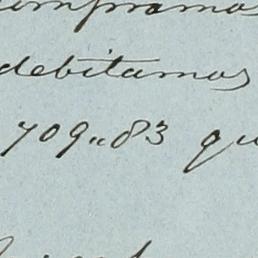 compramos
debitamos
709"83 qu